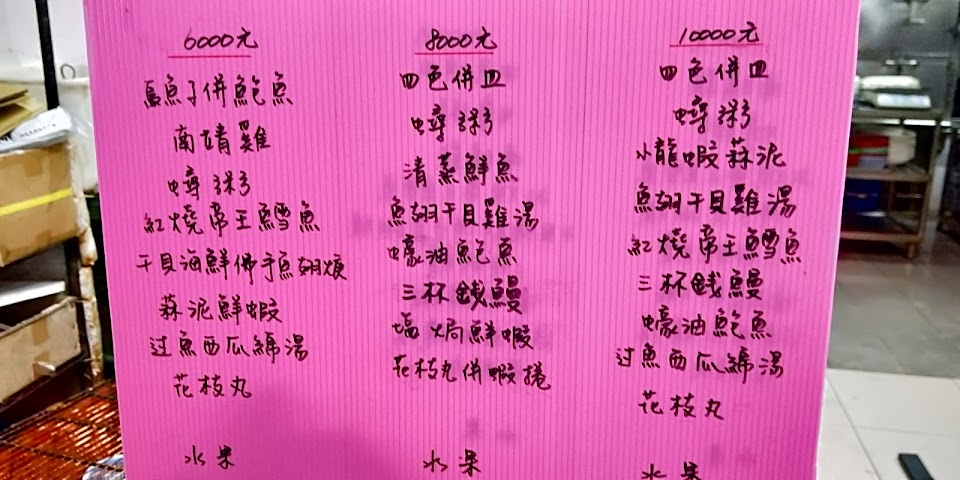 6000元
烏魚子併鮑魚
南靖雞
蟳粥
紅燒帝王鱈魚
干貝海鮮佛手魚翅羹
蒜泥鮮蝦
过魚西瓜綿湯
花枝丸
水果
8000元
四色併皿
蟳粥
清蒸鮮魚
魚翅干貝雞湯
蠔油鮑魚
三杯錢鰻
塩焗鮮蝦
花枝丸併蝦捲
水果
10000元
四色併皿
蟳粥
小龍蝦蒜泥
魚翅干貝雞湯
紅燒帝王鱈魚
三杯錢鰻
蠔油鮑魚
过魚西瓜綿湯
花枝丸
水果